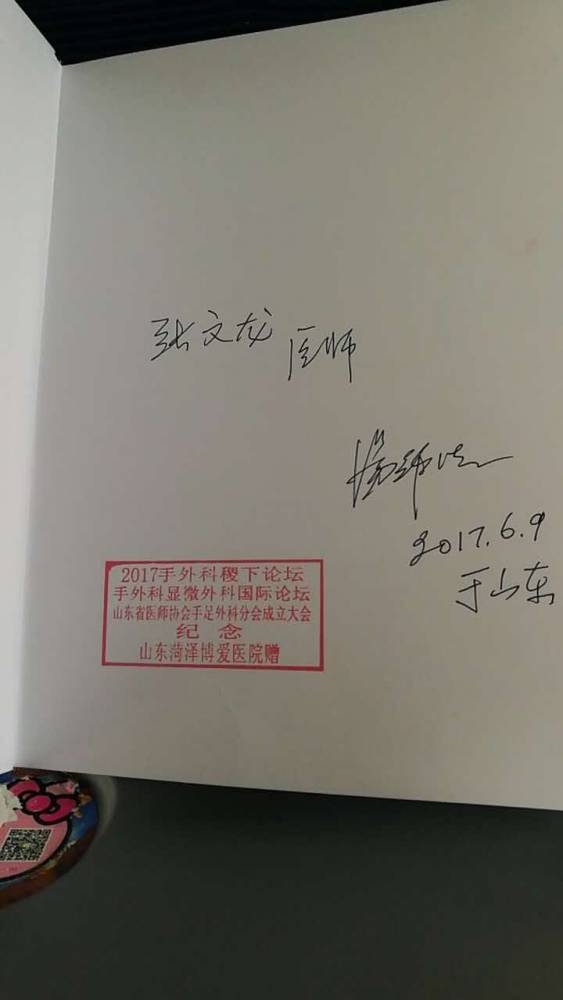 张文龙 医师
2017.6.9
于山东
2017手外科稷下论坛
手外科显微外科国际论坛
山东省医师协会手足外科分会成立大会
纪念
山东菏泽博爱医院赠